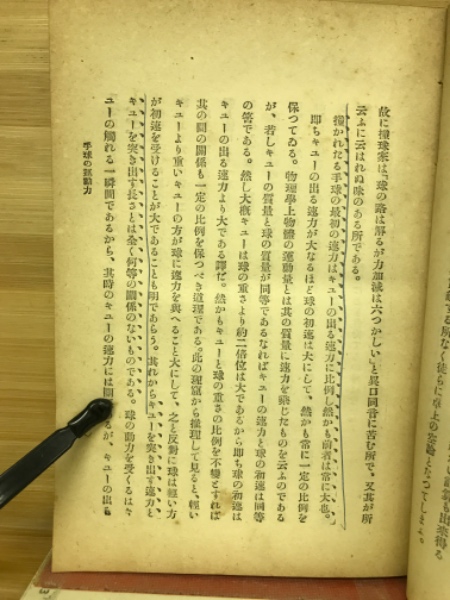 故に撞球家は「球の路は解るが力加減は六つかしい」と異口同音に苦む所で、又其が所
云ふに云はれぬ味のある所である。
撞かれたる手球の最初の速力はキューの出る速力に比例し然かも前者は常に大也。
即ちキューの出る速力が大なるほど球の初速は大にして、然かも常に一定の比例を
保つてゐる。物理學上物體の運動量とは其の質量に速力を乘じたものを云ふのである
が、若しキューの質量と球の質量が同等であるなればキューの速力と球の初速は同等
の筈である。然し大概キューは球の重さより約二倍位は大であるから即ち球の初速は
キューの出る速力より大である譯だ。然かもキューと球の重さの比例を不變とすれば
其の間の關係も一定の比例を保つべき道理である。此の理窟から推理して見ると、輕い
キューより重いキューの方が球に速力を與へること大にして、之と反對に球は輕い方
が初速を受けることが大であることも明であらう。其れからキューを突き出す速力と
キューを突き出す長さとは全く何等の關係のないものである。球の動力を受くるはキ
ューの觸れる一瞬間であるから、其時のキューの速力には關が、キューの出る
手球の運動力
所なく徒らに卓上の